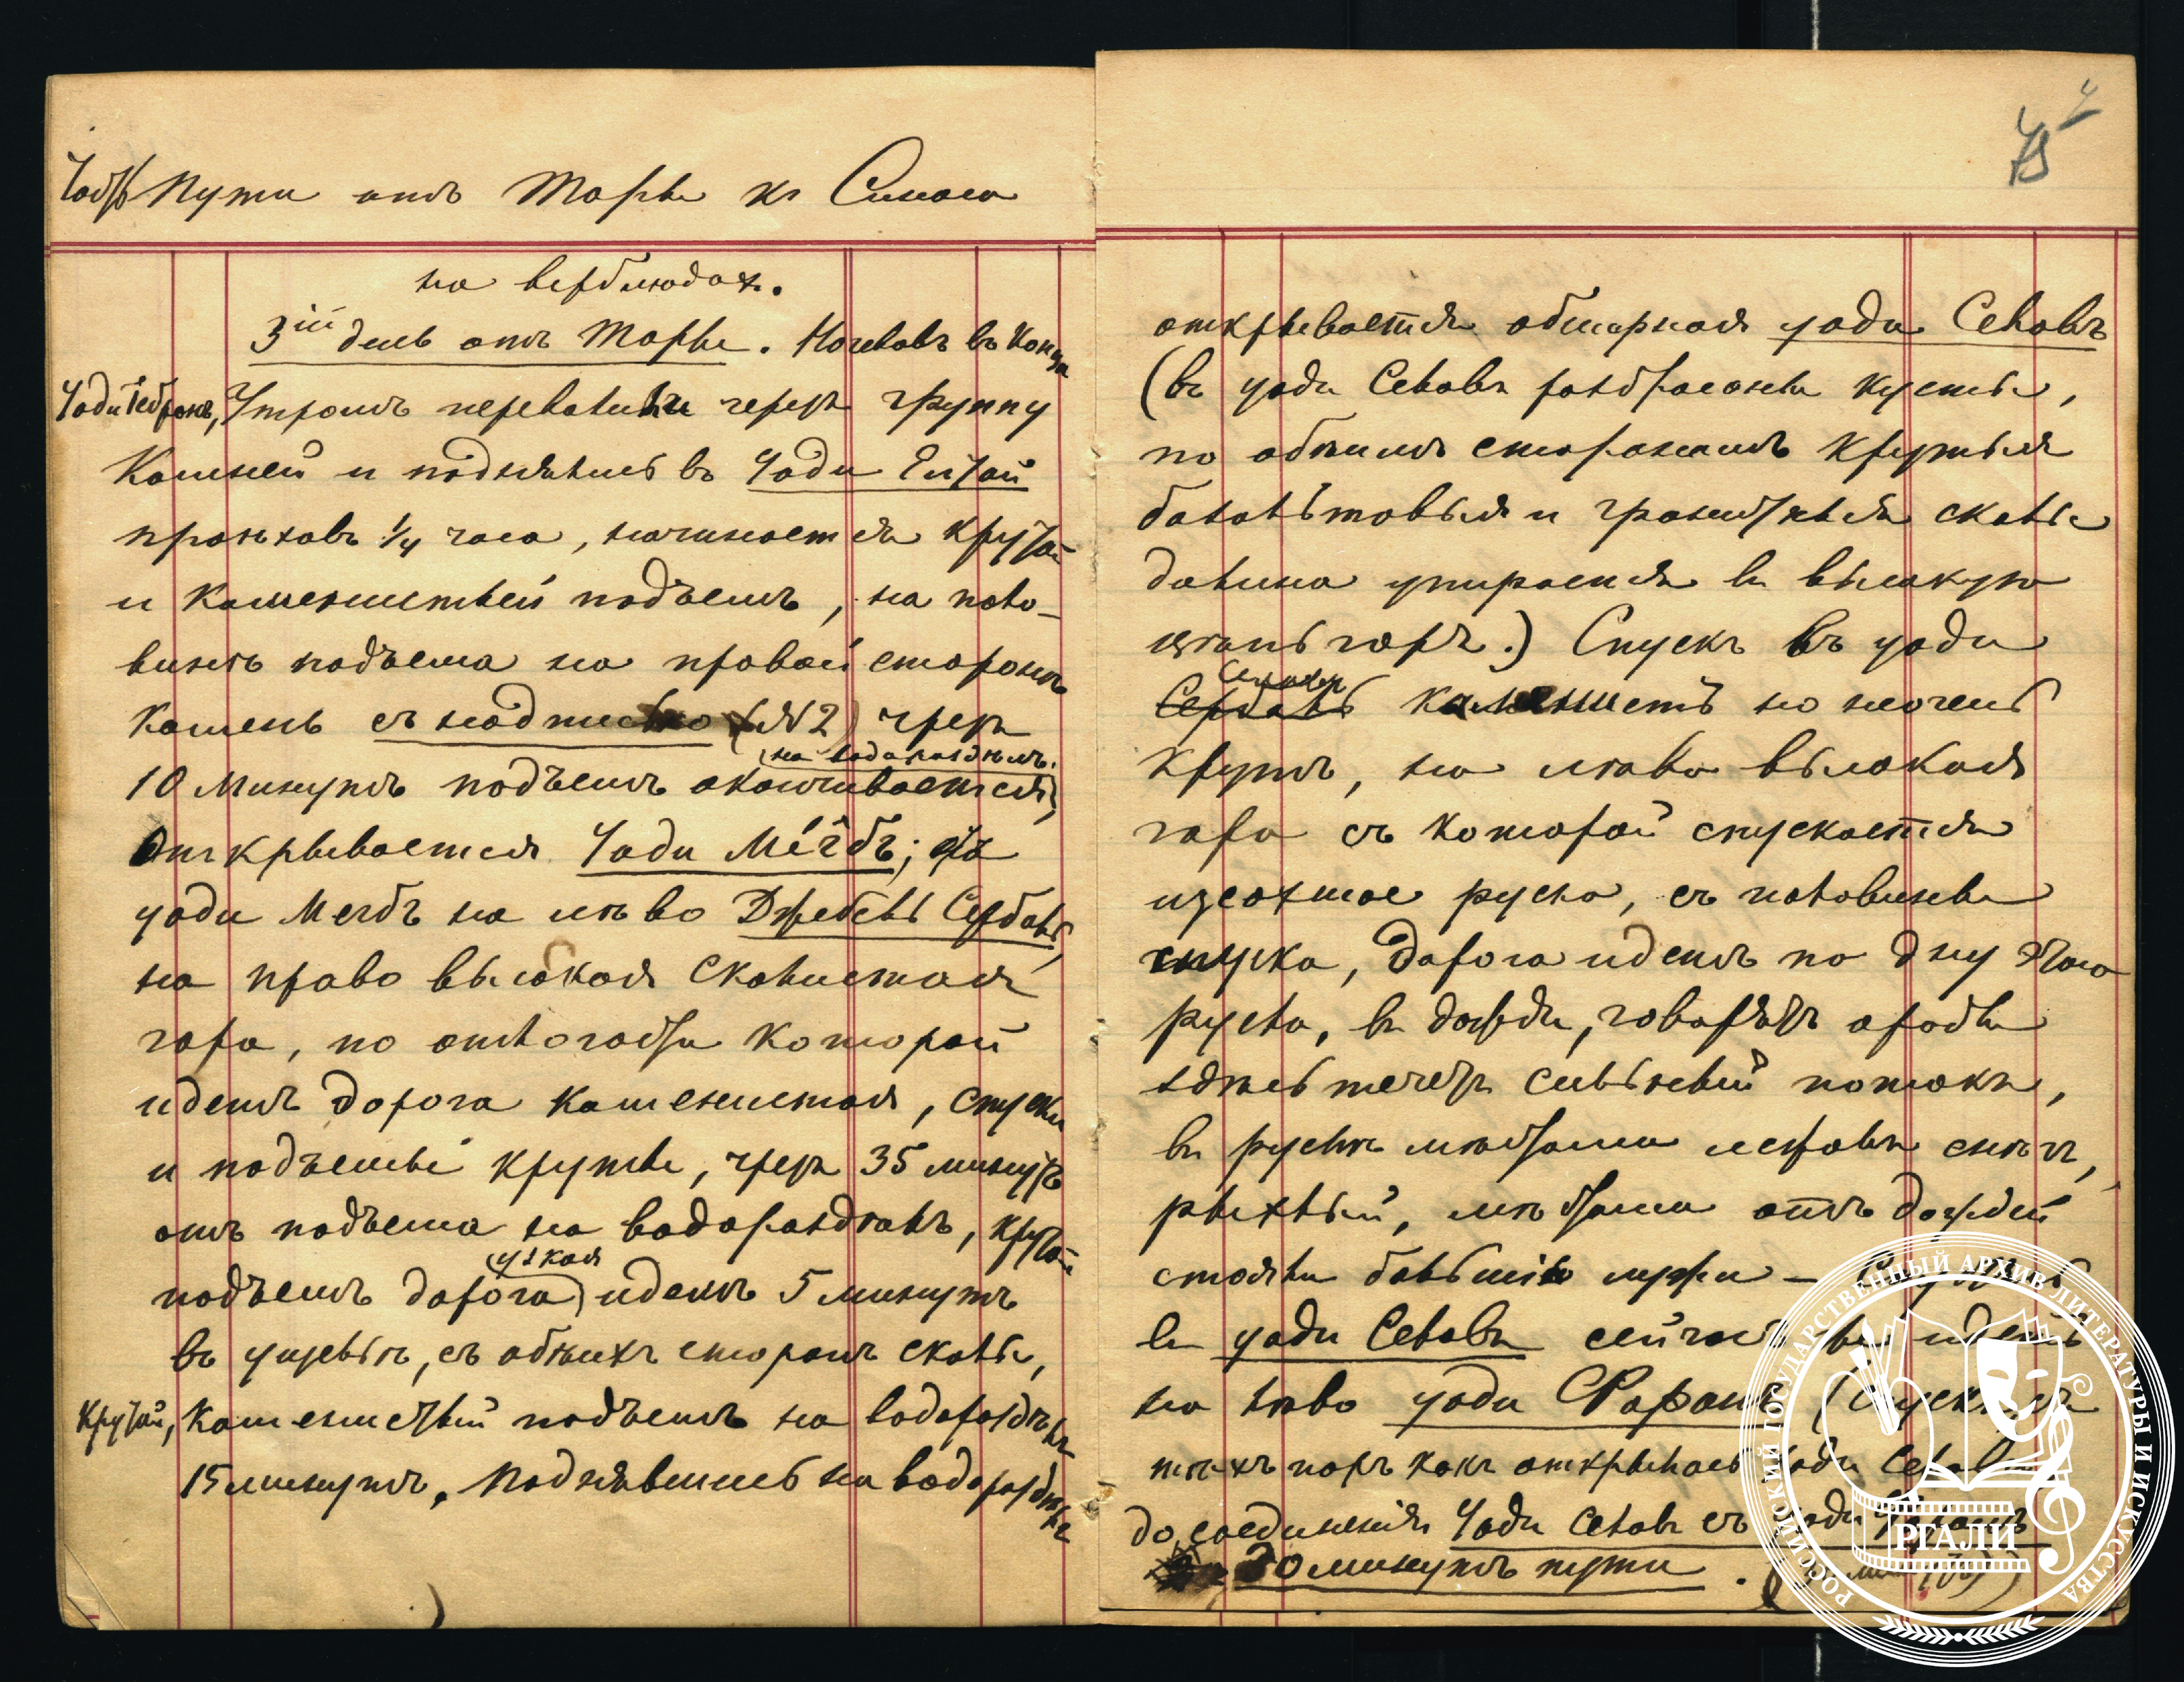 Пути отъ Торы къ Синаю
на верблюдахъ.
3ій день отъ Торы. Ночевавъ въ конца
Уади Гебронъ, Утромъ перевалили черезъ группу
Камней и поднявшись въ Уади
проѣхавъ 1/4 часа, начинается крутой
и каменистый подъемъ, на поло-
винѣ подъема на правой сторонѣ
Камень съ надписью (№2) чрезъ
на водораздѣлъ.
10 минутъ подъемъ оканчивается,
Открывается Уади
уади на лѣво Джебель Сербаль,
на право высокая скалистая
гора, по отлогости которой
идетъ дорога каменистая, спуски
и подъемы круты, чрезъ 35 минутъ
отъ подъема на водораздѣлъ, крутой
узкая
подъемъ дорога идетъ 5 минутъ
въ ущельѣ, съ обѣихъ сторонъ скалы,
крутой, каменистый подъемъ на водораздѣлъ
15 минутъ. Поднявшись на водораздѣлъ
открывается обширная уади Селавъ
(въ уади Селавъ разбросаны кусты,
по обѣимъ сторонамъ крутыя
базальтовыя и гранитныя скалы
долина упирается въ высокую
цѣпь горъ.) Спускъ въ уади
Сербаль каменистъ но не очень
крутъ, на лѣво высокая
гора съ которой спускается
изсохшое русло, съ половины
спуска, дорога идетъ по дну этого
русла, въ дожди, говорятъ арабы
здѣсь течетъ сильный потокъ,
въ руслѣ мѣстами лежалъ снѣгъ,
рыхлый, мѣстами отъ дождей
стояли большія лужи –
въ уади Селавъ сейчасъ идетъ
на лѣво уади Фаранъ (Спускъ съ
тѣхъ поръ какъ открылась уади Селавъ
до соединенія Уади Селавъ съ уади Фаранъ
30 минутъ пути.
РОССИЙСКИЙ ГОСУДАРСТВЕННЫЙ АРХИВ ЛИТЕРАТУРЫ И ИСКУССТВА
РГАЛИ